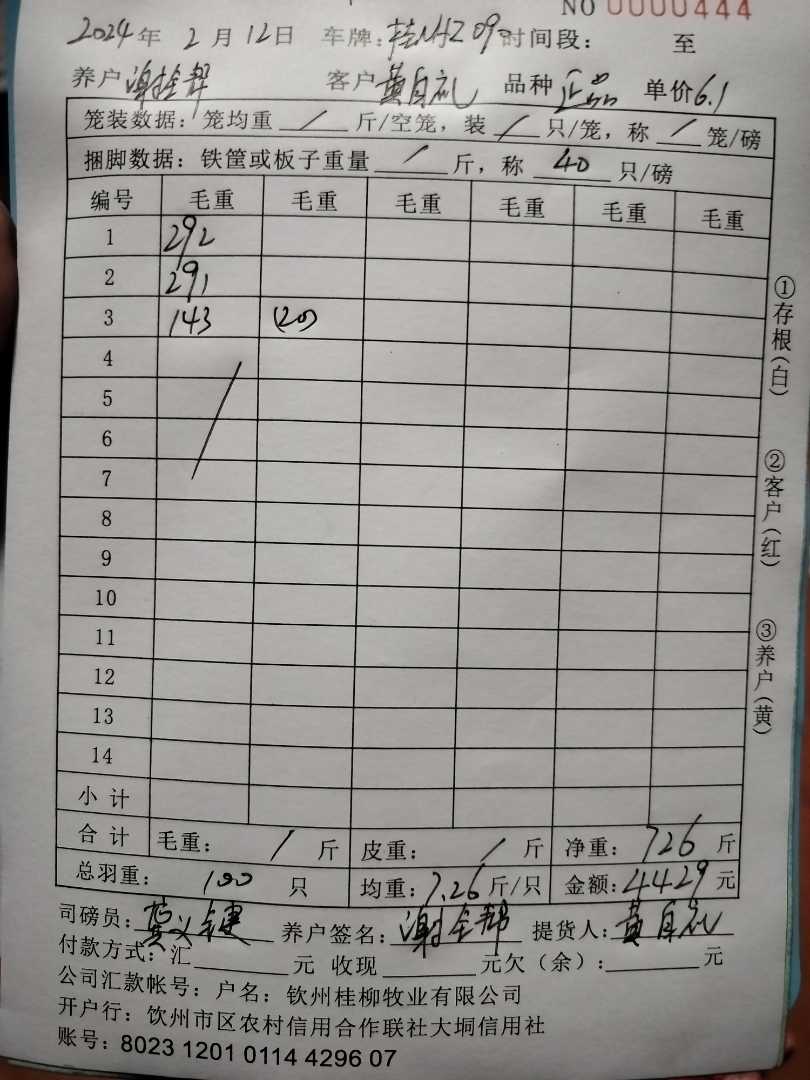 NO 0000444
2024年 2月 12日 车牌: 时间段: 至
养户 谢全帮 客户 黄自礼 品种 正品 单价6.1
笼装数据:笼均重 / 斤/空笼,装 / 只/笼,称 / 笼/磅
捆脚数据:铁筐或板子重量 / 斤,称 40 只/磅
编号 毛重 毛重 毛重 毛重 毛重 毛重
1 292
2 291
3 143 (20)
4
5
6
7
8
9
10
11
12
13
14
小计
合计 毛重: / 斤 皮重: / 斤 净重: 726 斤
总羽重: 100 只 均重: 7.26 斤/只 金额: 4429 元
司磅员: 养户签名: 谢全帮 提货人: 黄自礼
付款方式:汇 元 收现 元欠(余): 元
公司汇款帐号:户名:钦州桂柳牧业有限公司
开户行:饮州市区农村信用合作联社大垌信用社
账号:8023 1201 0114 4296 07
①存根(白)
②客户(红)
③养户(黄)